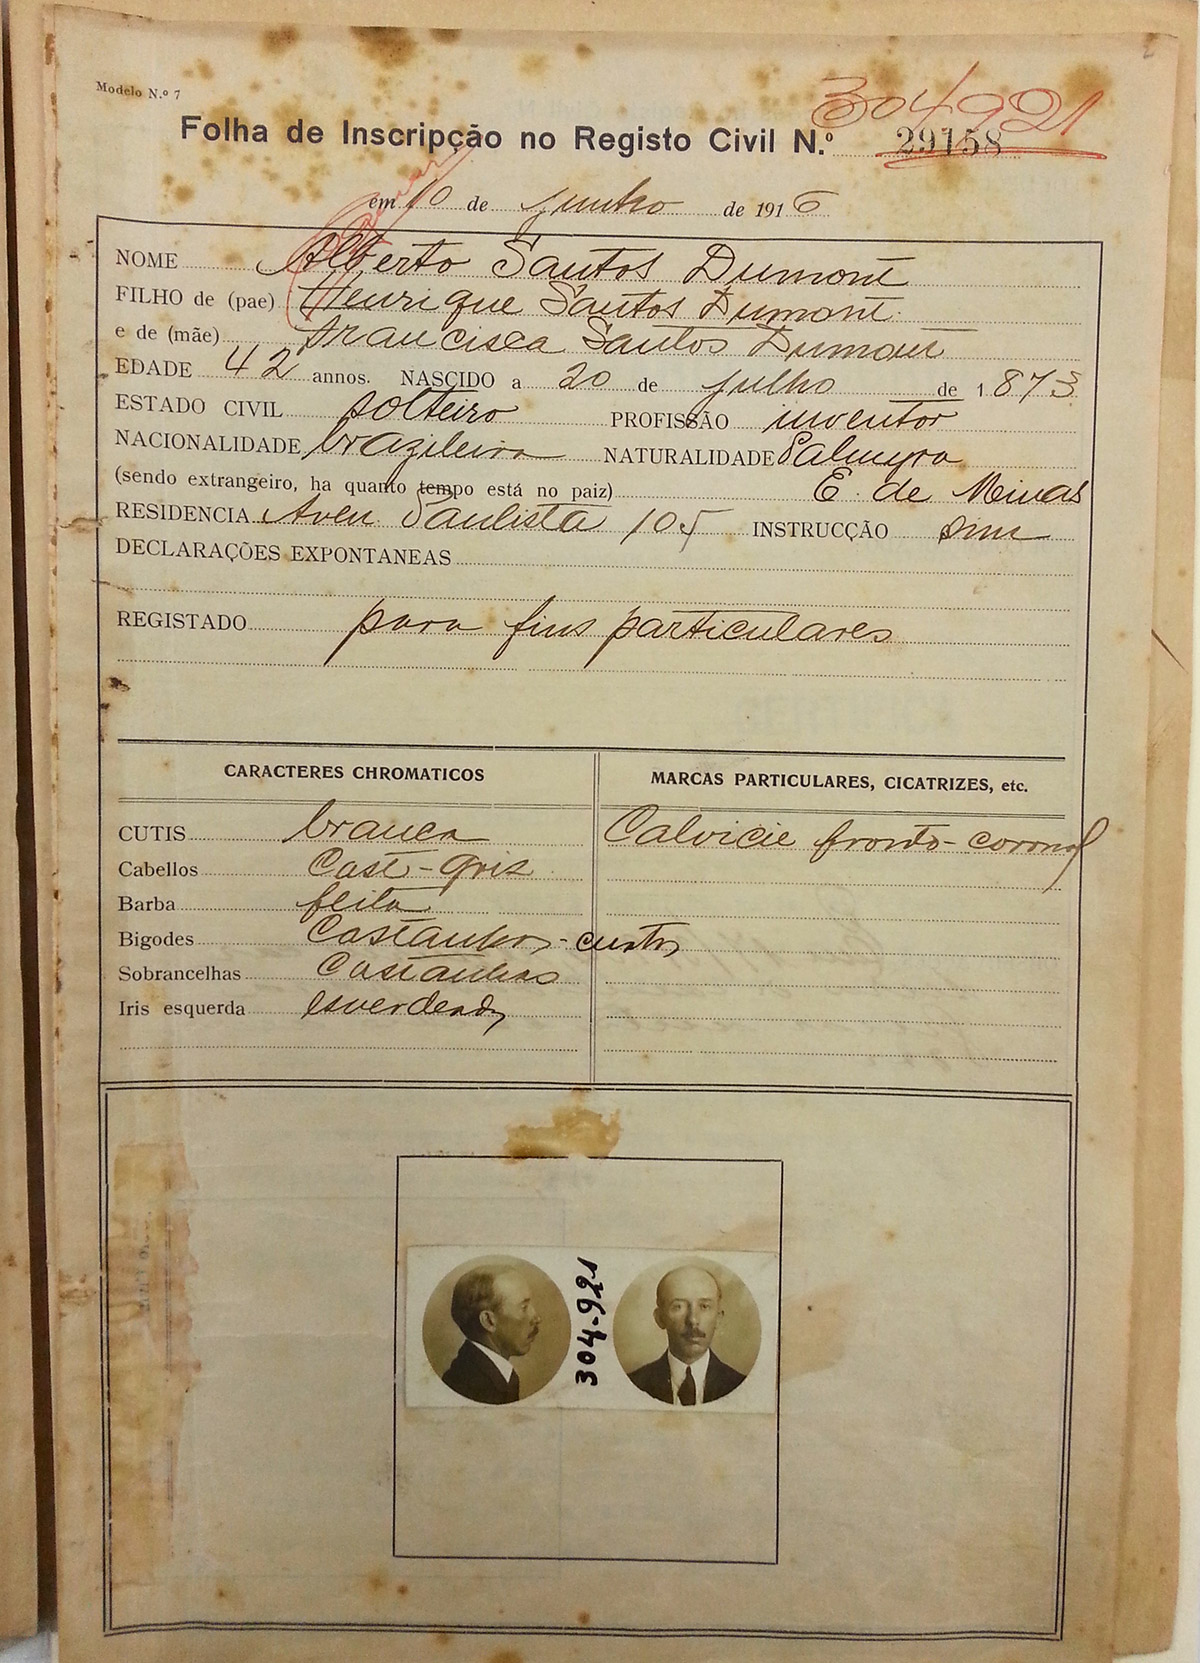 Modelo N.º 7
304921
Folha de Inscripção no Registo Civil N.º 29158
em 10 de junho de 1916
NOME Alberto Santos Dumont
FILHO de (pae) Henrique Santos Dumont
e de (mãe) Francisca Santos Dumont
EDADE 42 annos. NASCIDO a 20 de julho de 1873
ESTADO CIVIL solteiro PROFISSÃO inventor
NACIONALIDADE brazileira NATURALIDADE Palmyra
(sendo extrangeiro, ha quanto tempo está no paiz) E. de Minas
RESIDENCIA Aven Paulista 105 INSTRUCÇÃO sim
DECLARAÇÕES EXPONTANEAS
REGISTADO para fins particulares
CARACTERES CHROMATICOS
MARCAS PARTICULARES, CICATRIZES, etc.
CUTIS branca Calvicie fronto-coronal
Cabellos Cast-gris
Barba feita
Bigodes Castanhos-curtos
Sobrancelhas Castanhas
Iris esquerda esverdeada
304-921